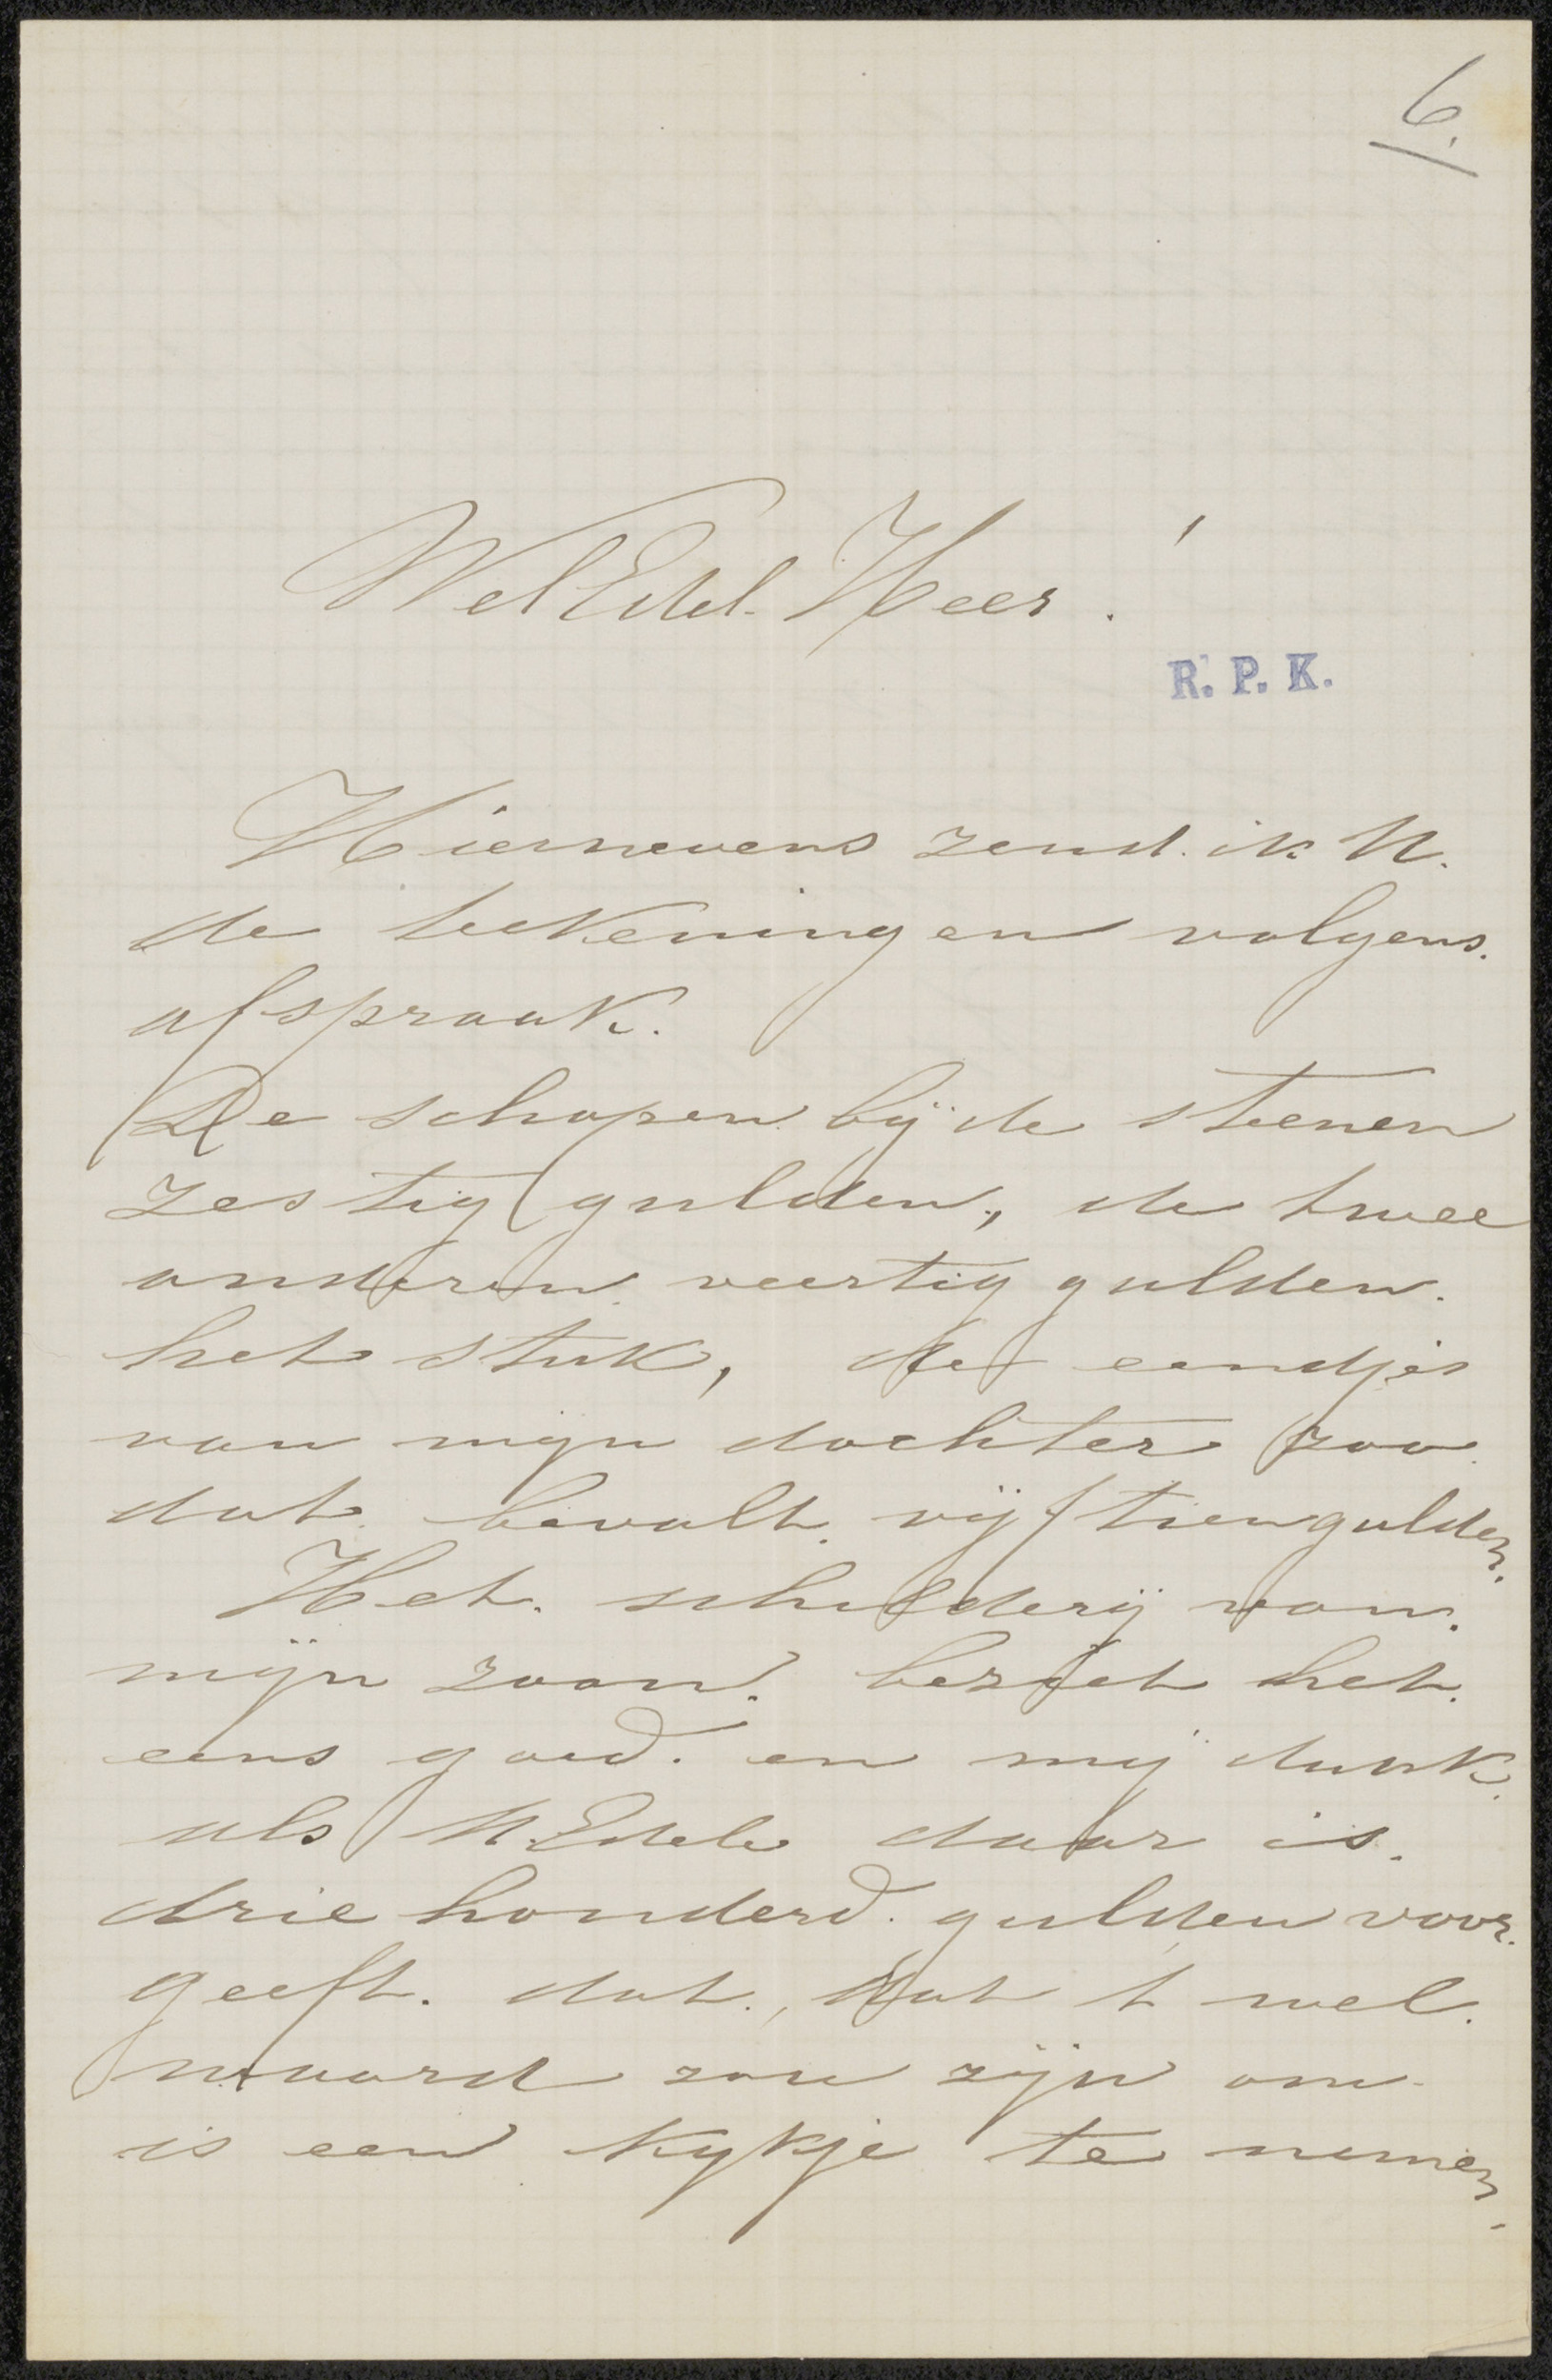 6.
WelEdel. Heer!
R. P. K.
Hiernevens zend ik U.
de teekeningen volgens.
afspraak.
De schapen bij de steenen
zestig gulden, de twee
anderen veertig gulden.
het stuk, de eendjes
van mijn dochter zoo
dat bevalt vijftien gulden.
Het schilderij van.
mijn zoon. beziet het.
eens goed. en mij dunk.
als UEdele daar is.
driehonderd. gulden voor.
geeft. dat., dat t wel.
waard zou zijn om
is een kykje te nemen.